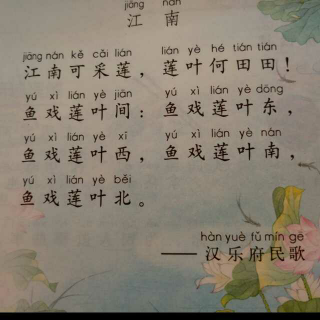 jiāng nán
江 南
jiāng nán kě cǎi lián lián yè hé tián tián
江南可采莲，莲叶何田田！
yú xì lián yè jiān yú xì lián yè dōng
鱼戏莲叶间：鱼戏莲叶东，
yú xì lián yè xī yú xì lián yè nán
鱼戏莲叶西，鱼戏莲叶南，
yú xì lián yè běi
鱼戏莲叶北。
hàn yuè fǔ mín gē
——汉乐府民歌